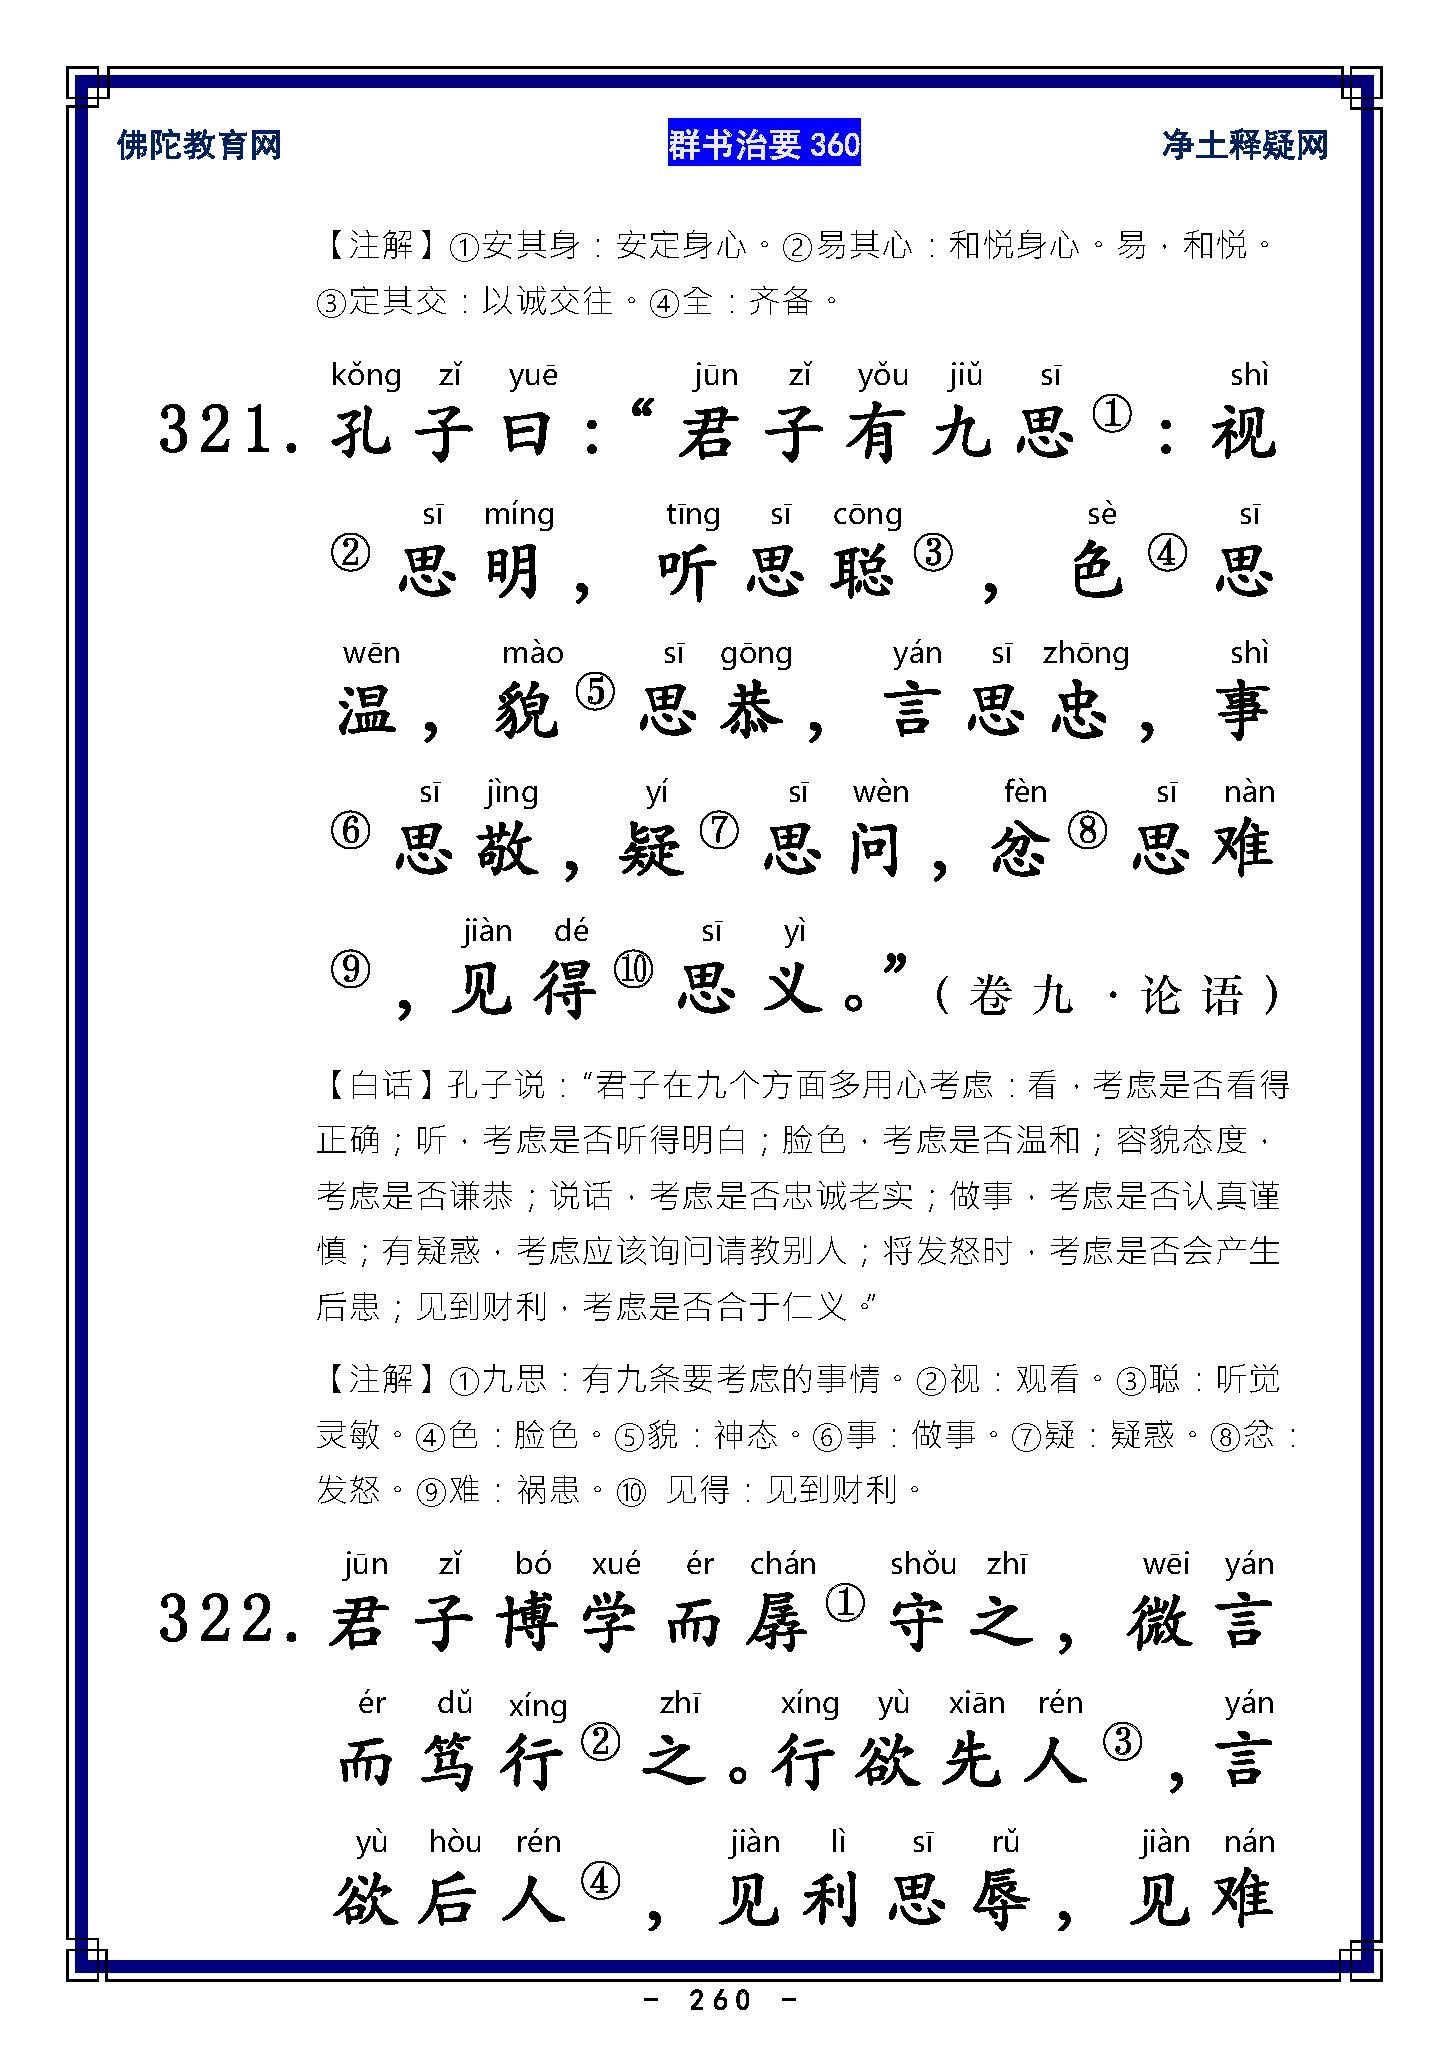 佛陀教育网 群书治要 360 净土释疑网
【注解】①安其身：安定身心。②易其心：和悦身心。易，和悦。
③定其交：以诚交往。④全：齐备。
kǒng zǐ yuē jūn zǐ yǒu jiǔ sī shì
321. 孔子曰：“君子有九思①：视
sī míng tīng sī cōng sè sī
②思明，听思聪③，色④思
wēn mào sī gōng yán sī zhōng shì
温，貌⑤思恭，言思忠，事
sī jìng yí sī wèn fèn sī nàn
⑥思敬，疑⑦思问，忿⑧思难
jiàn dé sī yì
⑨，见得⑩思义。”（卷九·论语）
【白话】孔子说：“君子在九个方面多用心考虑：看，考虑是否看得
正确；听，考虑是否听得明白；脸色，考虑是否温和；容貌态度，
考虑是否谦恭；说话，考虑是否忠诚老实；做事，考虑是否认真谨
慎；有疑惑，考虑应该询问请教别人；将发怒时，考虑是否会产生
后患；见到财利，考虑是否合于仁义。”
【注解】①九思：有九条要考虑的事情。②视：观看。③聪：听觉
灵敏。④色：脸色。⑤貌：神态。⑥事：做事。⑦疑：疑惑。⑧忿：
发怒。⑨难：祸患。⑩ 见得：见到财利。
jūn zǐ bó xué ér chán shǒu zhī wēi yán
322. 君子博学而孱①守之，微言
ér dǔ xíng zhī xíng yù xiān rén yán
而笃行②之。行欲先人③，言
yù hòu rén jiàn lì sī rǔ jiàn nán
欲后人④，见利思辱，见难
- 260 -